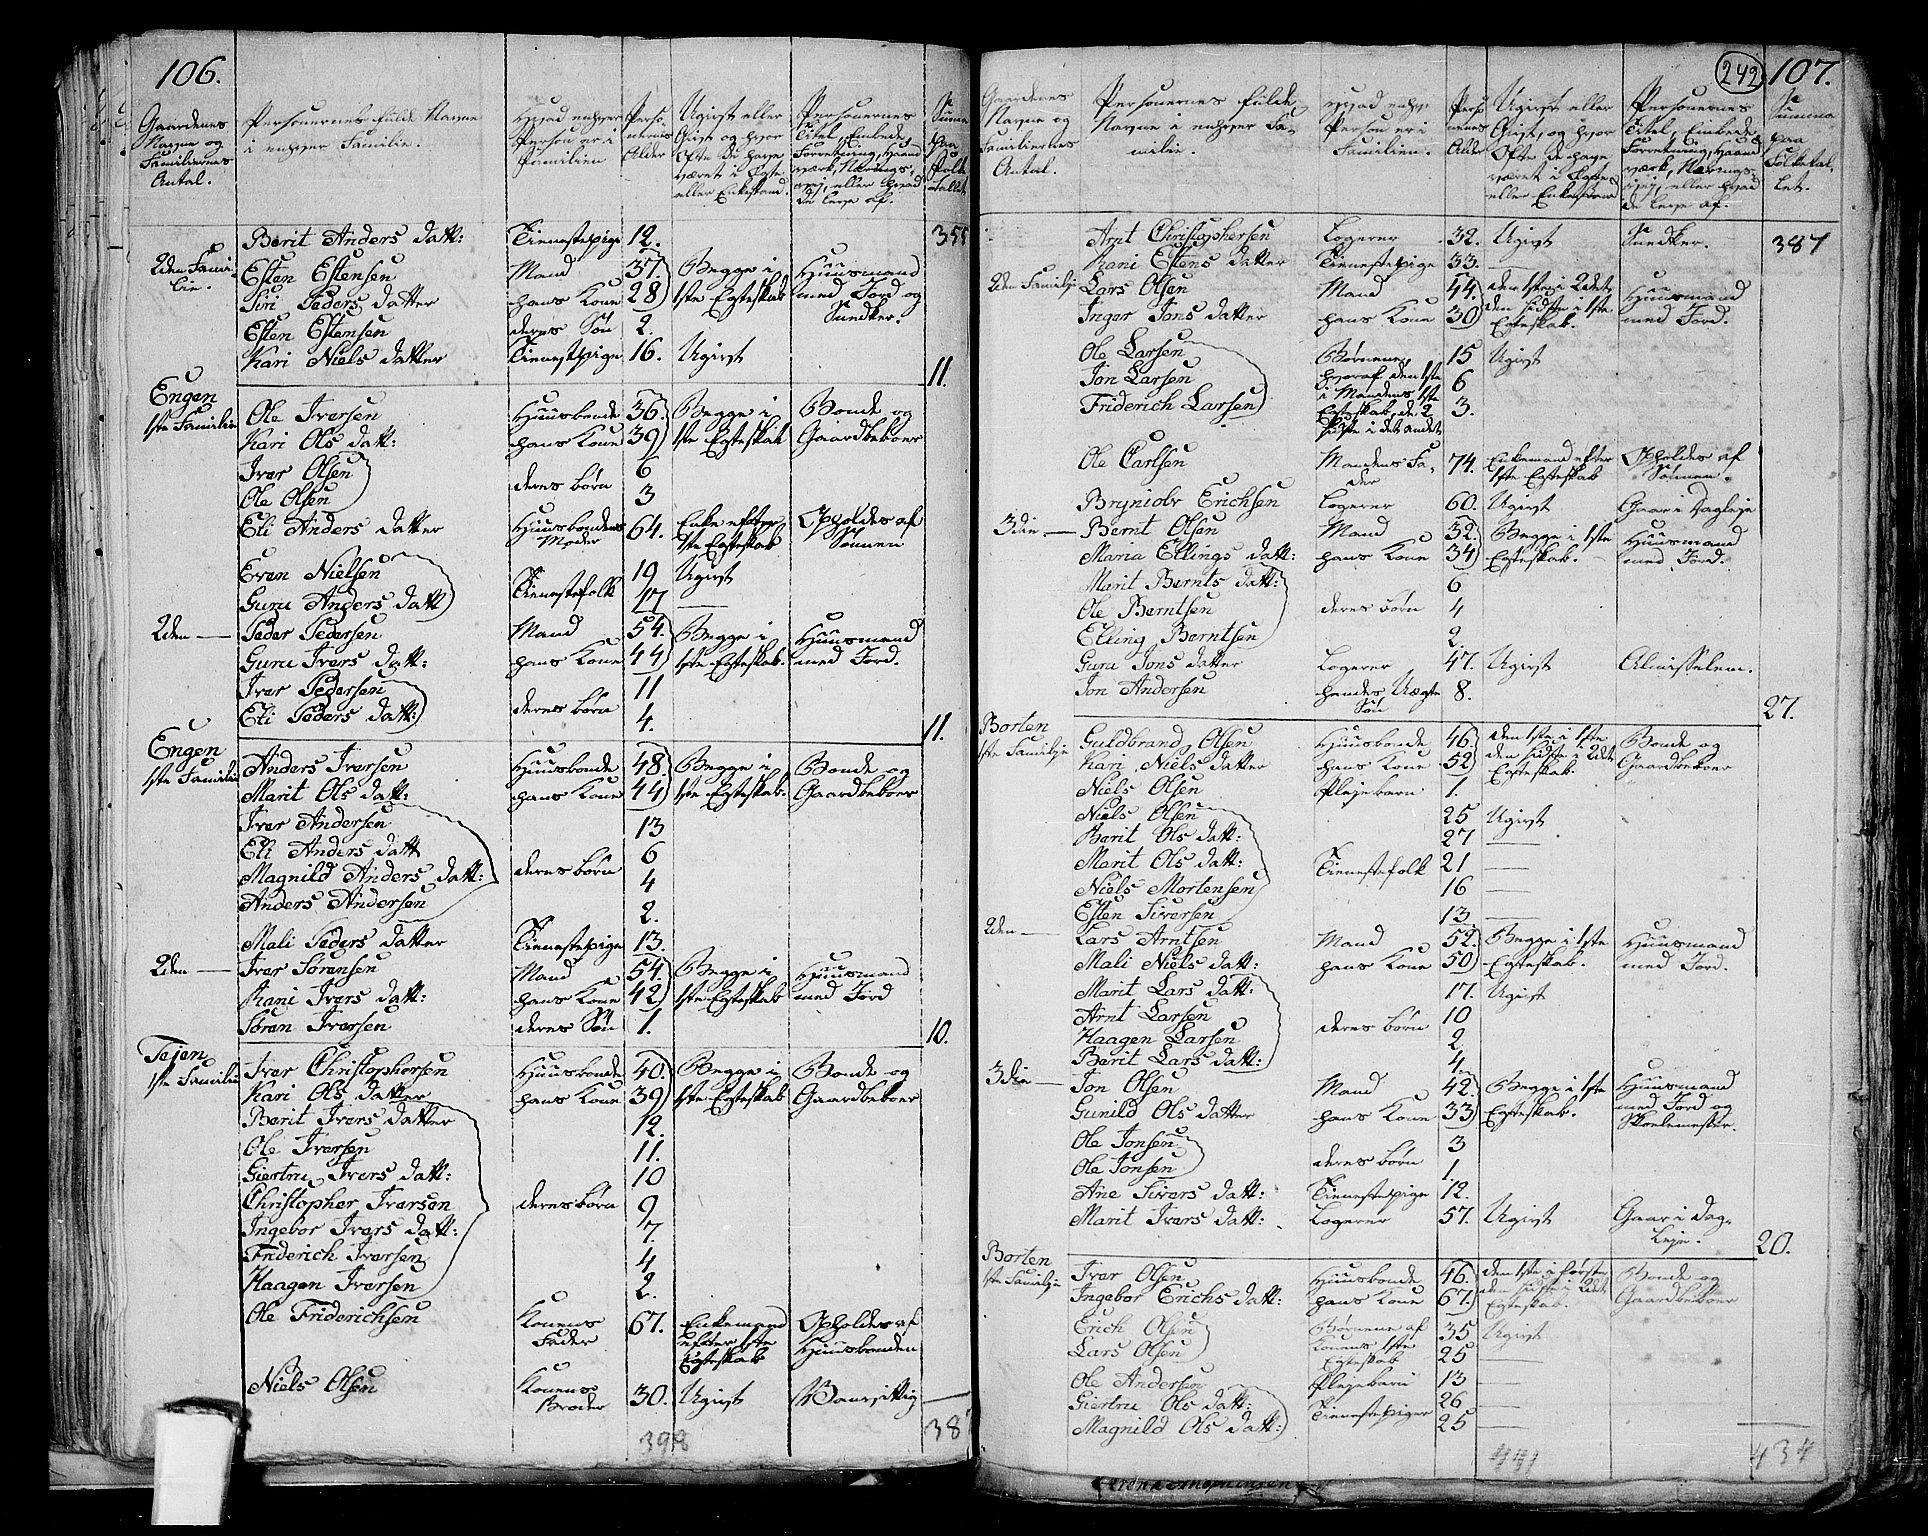 106.
Gaardenes Navne og Familiernes Antal.
Personernes fulde Navne i enhver Familie.
Hvad enhver Person er i Familien
Personernes Alder
Ugivt eller Givt og hvor Ofte De have været i Ægteskab eller Enkestand.
Personernes Titel, Embede, Forretning, Haandværk, Nærings-vej, eller hvad de leve af.
Summa paa Folketallet
Berit Anders datt: Tienestepige 12. 355
2den Familie. Esten Estensen Mand 37. Begge i 1ste Egteskab Huusmand med Jord og Snedker.
Siri Peders datter hans Kone 28
Esten Estensen deres Søn 2.
Kari Niels datter Tienestpige 16. Ugivt
11.
Engen
1ste Familie Ole Iversen Huusbonde 36. Begge i 1ste Egteskab Bonde og Gaardbeboer
Kari Ols datt: hans Kone 39
Iver Olsen deres børn 6
Ole Olsen 3
Eli Anders datter Huusbondens Moder 64. Enke efter 1ste Egteskab Opholdes af Sønnen
Even Nielsen Tienestefolk 19 Ugivt
Guru Anders datt 47 —
2den — Peder Pedersen Mand 54. Begge i 1ste Egteskab Huusmand med Jord.
Guru Ivers datt: hans Kone 44
Iver Pedersen deres børn 11
Eli Peders datt: 4.
11.
Engen
1ste Familie Anders Iversen Huusbonde 48. Begge i 1ste Egteskab. Bonde og Gaardbeboer
Marit Ols datt: hans Kone 44
Iver Andersen 13
Eli Anders datt 6
Magnild Anders datt: deres børn 4
Anders Andersen 2.
Mali Peders datter Tienestepige 13.
2den — Iver Sørensen Mand 54. Begge i 1ste Egteskab Huusmand med Jord
Rani Ivers datt: hans Kone 42
Søren Iversen deres Søn 1.
10.
Teien
1ste Familie Iver Christophersen Huusbonde 40. Begge i 1ste Egteskab Bonde og Gaardbeboer
Kari Ols datter hans Kone 39
Berit Ivers datter 12.
Ole Iversen 11.
Giertru Ivers datt: 10
Christopher Iversen deres børn 9
Ingebor Ivers datt: 7.
Friderich Iversen 4
Haagen Iversen 2.
Ole Friderichsen Konens Fader 67. Enkemand efter 1ste Egteskab Opholdes af Huusbonden
Niels Olsen Konens Broder 30. Ugivt Vanvittig
398
38
249
107.
Gaardenes Navne og Familiernes Antal.
Personernes fulde Navne i enhver Familie.
Hvad enhver Person er i Familien.
Personernes Alder
Ugivt eller Givt, og hvor Ofte de have været i Ægteskab eller Enkestand
Personernes Titel, Embede Forretning, Haandværk, Nærings-vej, eller hvad de leve af.
Summa paa Folketallet.
Arnt Christophersen Logerer 32. Ugivt Snedker. 387
Rani Estens datter Tienestepige 33. —
2den Familje Lars Olsen Mand 44. den 1ste i 2det den sidste i 1ste Egteskab. Huusmand med Jord.
Inger Jons datter hans Kone 30
Ole Larsen Børnene, hvoraf den 1ste i Mandens 1ste Egteskab, de 2 sidste i det andet 15 Ugivt
Jon Larsen 6
Friderich Larsen 3.
Ole Carlsen Mandens Fader 74. Enkemand efter 1ste Egteskab Opholdes af Sønnen.
Bryniolv Erichsen Logerer 60. Ugivt Gaar i Dagleje
3die — Bernt Olsen Mand 32. Begge i 1ste Egteskab. Huusmand med Jord.
Maria Ellings datt: hans Kone 34
Marit Bernts datt: 6
Ole Berntsen deres børn 4
Elling Berntsen 2.
Guru Jons datter Logerer 47. Ugivt Almisselem.
Jon Andersen hendes Uægte Søn 8.
27.
Borten
1ste Familje Guldbrand Olsen Huusbonde 46. den 1ste i 1ste den sidste i 2det Egteskab. Bonde og Gaardbeboer
Kari Niels datter hans Kone 52
Niels Olsen Plejebarn 1.
Niels Olsen 25 Ugivt
Berit Ols datt: 27 —
Marit Ols datt: Tienestefolk 21
Niels Mortensen 16 —
Esten Siversen 13 —
2den — Lars Arntsen Mand 52. Begge i 1ste Egteskab. Huusmand med Jord.
Mali Niels datt: hans Kone 50
Marit Lars datt: 17. Ugivt
Arnt Larsen 10
Haagen Larsen deres børn 2
Berit Lars datt: 4.
3die — Jon Olsen Mand 42. Begge i 1ste Egteskab. Huusmand med Jord og Skolemester.
Gunild Ols datter hans Kone 33
Ole Jonsen deres børn 3
Ole Jonsen 1.
Ane Sivers datt: Tienestepige 12.
Marit Ivers datt: Logerer 57. Ugivt Gaar i Dagleje.
20.
Borten
1ste Familje Iver Olsen Huusbonde 46. den 1ste i første den sidste i 2det Egteskab. Bonde og Gaardbeboer
Ingebor Erichs datt: hans Kone 67.
Erich Olsen Børnene af Konens 1ste Egteskab 35 Ugivt
Lars Olsen 25 —
Ole Andersen Plejebarn 13 —
Giertru Ols datt: Tienestepiger 26 —
Magnild Ols datt: 25 —
441
434